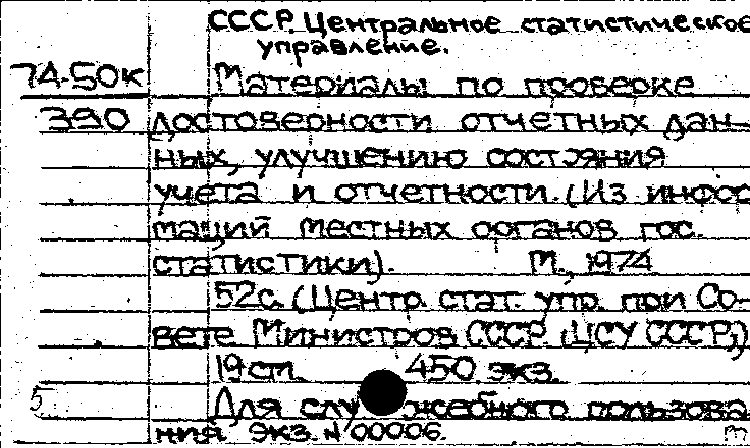 СССР. Центральное статистическое
управление.
74-50к Материалы по проверке
390 достоверности отчетных дан-
ных, улучшению состояния
учета и отчетности. (Из инфор
маций местных органов гос.
статистики). М., 1974
52с. (Центр. стат. упр. при Со-
вете Министров СССР (ЦСУ СССР))
19см. 450 экз.
5 Для служебного пользова
ния экз. № 00006.